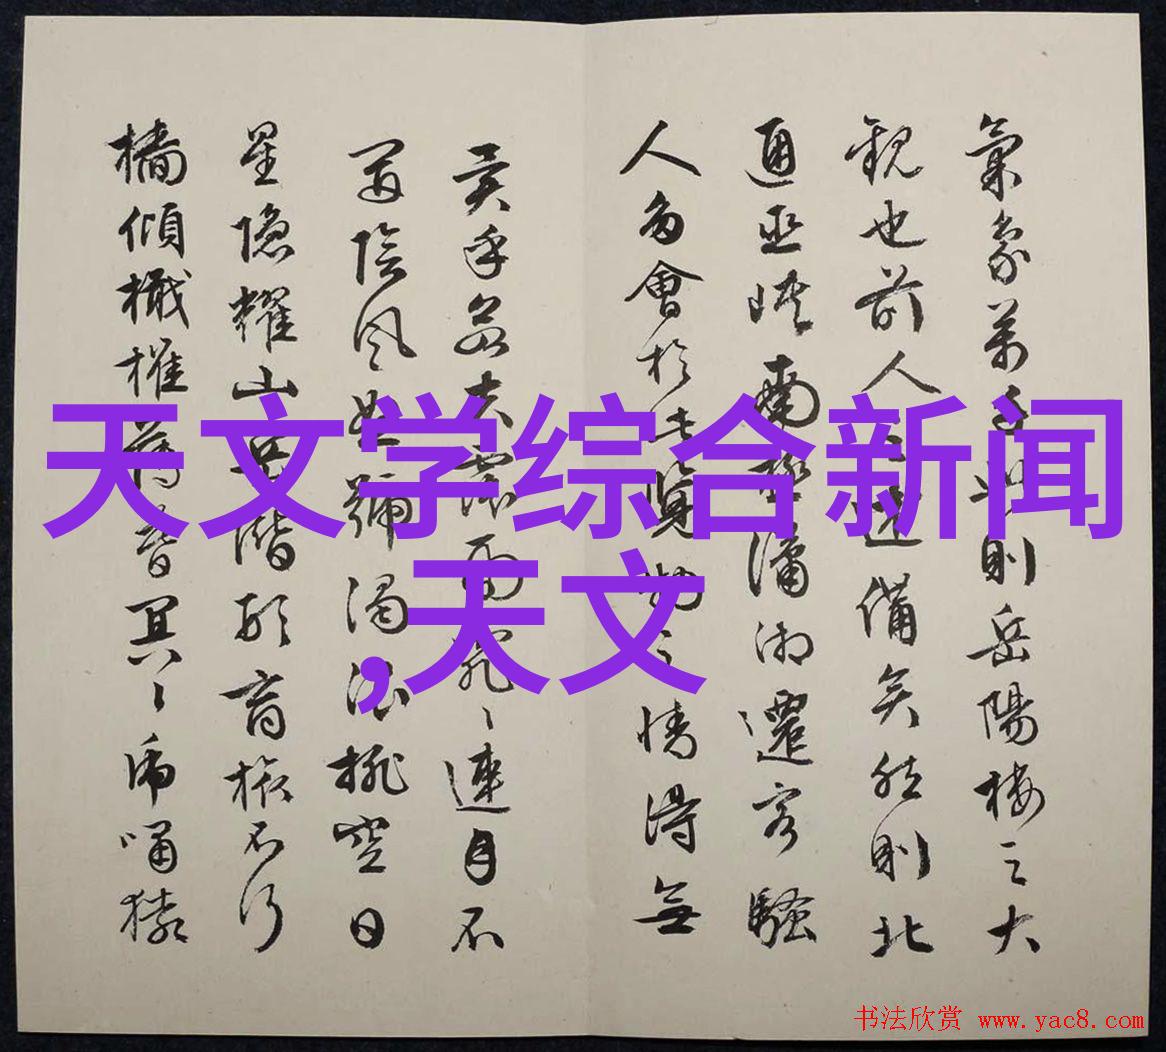 氣象萬千此則岳陽樓之大
觀也前人之述備矣然則北
通巫峽南極瀟湘遷客騷
人多會於此覽物之情得無
異乎若夫霪雨霏〻連月不
開陰風怒號濁浪排空日
星隱耀山岳潛形商旅不行
檣傾檝摧薄暮冥〻虎嘯猿
天文学综合新闻
,天文
书法欣赏 www.yac8.com